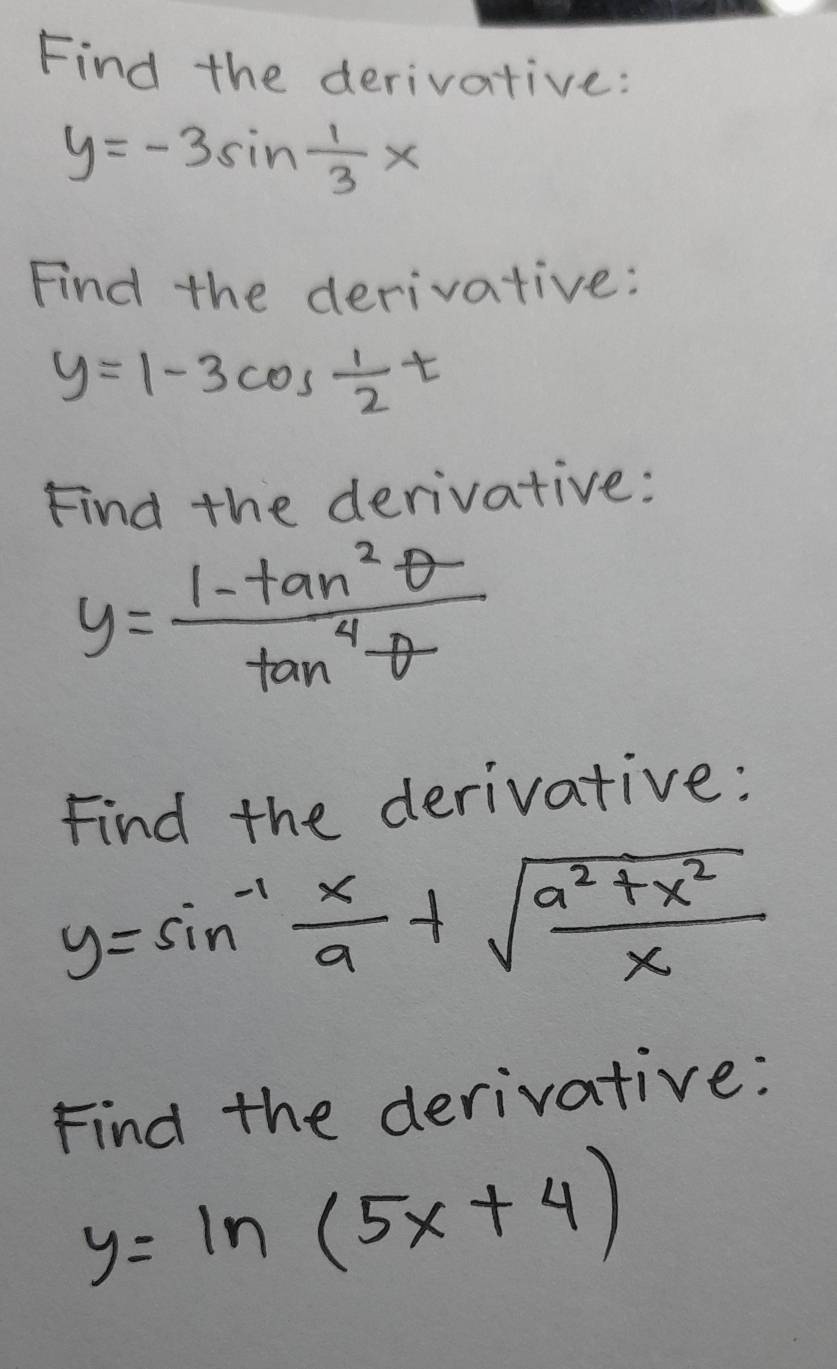 Find the derivative:
y=-3sin 1/3 x
Find the derivative:
y=1-3cos 1/2 t
Find the derivative:
y= (1-tan²θ)/(tan⁴θ)
Find the derivative:
y=sin⁻¹ x/a + √(a²+x²)/x
Find the derivative:
y= ln (5x+4)